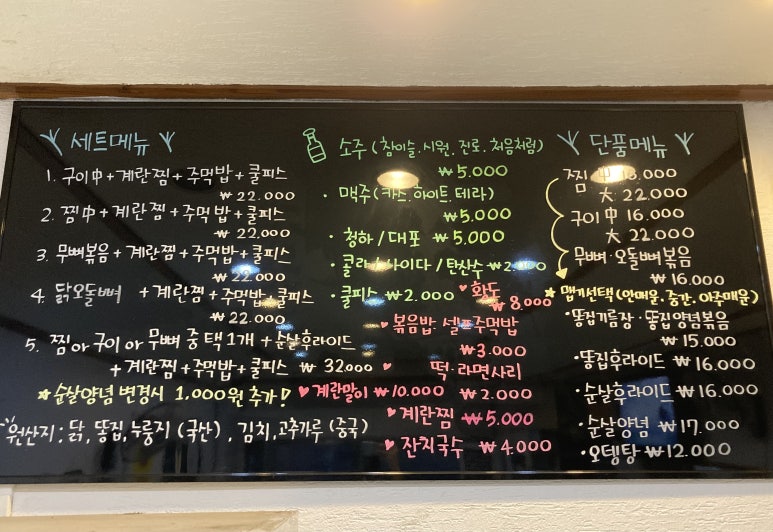 세트메뉴
1. 구이中+계란찜+주먹밥+쿨피스
₩22.000
2. 찜中+계란찜+주먹밥+쿨피스
₩22.000
3. 무뼈볶음+계란찜+주먹밥+쿨피스
₩22.000
4. 닭오돌뼈 +계란찜+주먹밥+쿨피스
₩22.000
5. 찜or구이or무뼈 중 택1개+순살후라이드
+계란찜+주먹밥+쿨피스 ₩32000
★순살양념 변경시 1,000원 추가!
원산지: 닭, 똥집, 누룽지(국산), 김치, 고추가루(중국)
소주(참이슬.시원.진로.처음처럼)
₩5.000
·맥주(카스.하이트.테라)
₩5.000
·청하/대포 ₩5.000
·콜라/사이다/탄산수 ₩2.000
·쿨피스 ₩2.000
♥황도
₩8.000
♥볶음밥 셀프주먹밥
₩3.000
♥떡·라면사리
₩2.000
♥계란말이 ₩10.000
♥계란찜 ₩5.000
♥잔치국수 ₩4.000
단품메뉴
찜 中 .000
大 22.000
구이中 16.000
大 22.000
무뼈·오돌뼈볶음
₩16.000
★맵기선택(안매움.중간.아주매움)
·똥집기름장·똥집양념볶음
₩15.000
·똥집후라이드 ₩16.000
·순살후라이드 ₩16.000
·순살양념 ₩17.000
·오뎅탕 ₩12.000